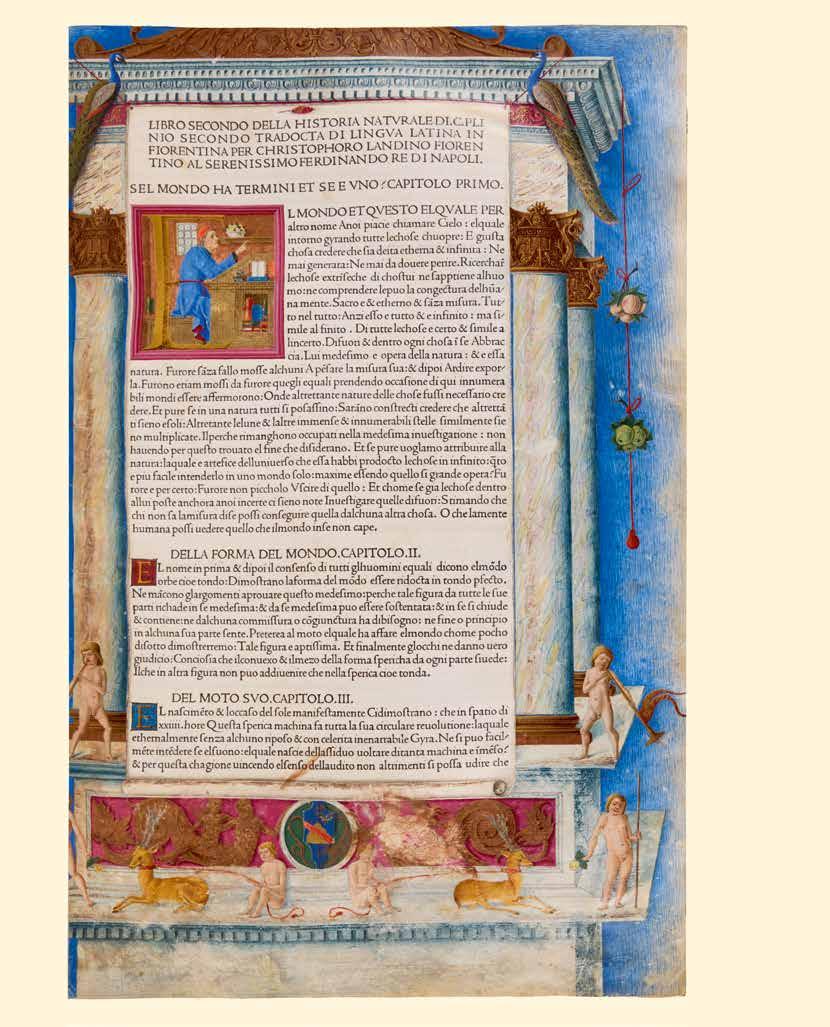 LIBRO SECONDO DELLA HISTORIA NATVRALE DI.C.PLI
NIO SECONDO TRADOCTA DI LINGVA LATINA IN
FIORENTINA PER CHRISTOPHORO LANDINO FIOREN
TINO AL SERENISSIMO FERDINANDO RE DI NAPOLI.
SEL MONDO HA TERMINI ET SE E VNO? CAPITOLO PRIMO.
L MONDO ET QVESTO ELQVALE PER
altro nome Anoi piacie chiamare Cielo : elquale
intorno gyrando tutte lechose chuopre: E giusta
chosa credere che sia deita etherna & infinita : Ne
mai generata: Ne mai da douere perire. Ricerchar
lechose extriseche di chostui ne sapptiene alhuo
mo: ne comprendere lepuo la congectura delhūa/
na mente. Sacro e & etherno & sāza misura. Tut/
to nel tutto: Anzi esso e tutto & e infinito : ma si/
mile al finito . Di tutte lechose e certo & simile a
lincerto. Difuori & dentro ogni chosa ī se Abbrac
cia. Lui medesimo e opera della natura : & e essa
natura. Furore sāza fallo mosse alchuni A pēsare la misura sua: & dipoi Ardire expor/
la. Furono etiam mossi da furore quegli equali prendendo occasione di qui innumera
bili mondi essere affermorono: Onde altrettante nature delle chose fussi necessario cre
dere. Et pure se in una natura tutti si posassino: Sarāno constrecti credere che altrettā
ti sieno esoli: Altretante lelune & laltre immense & innumerabili stelle similmente sie
no multiplicate. Ilperche rimanghono occupati nella medesima inuestigatione : non
hauendo per questo trouato el fine che disiderano. Et se pure uogliamo attribuire alla
natura: laquale e artefice delluniuerso che essa habbi prodocto lechose in infinito: q̄to
e piu facile intenderlo in uno mondo solo: maxime essendo quello si grande opera? Fu
rore e per certo: Furore non picholo Vscire di quello : Et chome se gia lechose dentro
allui poste anchora anoi incerte ci sieno note Inuestigare quelle difuori: Stimando che
chi non sa lamisura dise possi conseguire quella dalchuna altra chosa. O che lamente
humana possi uedere quello che ilmondo inse non cape.
DELLA FORMA DEL MONDO.CAPITOLO.II.
EL nome in prima & dipoi il consenso di tutti glhuomini equali dicono elmōdo
orbe cioe tondo: Dimostrano laforma del mōdo essere ridocta in tondo pfecto.
Ne mācono glargomenti aprouare questo medesimo: perche tale figura da tutte le sue
parti richade in se medesima: & da se medesima puo essere sostentata: & in se si chiude
& contiene: ne dalchuna commissura o cōgiunctura ha dibisogno: ne fine o principio
in alchuna sua parte sente. Preterea al moto elquale ha affare elmondo chome pocho
disotto dimostrerremo: Tale figura e aptissima. Et finalmente glocchi ne danno uero
giudicio: Conciosia che ilconuexo & ilmezo della forma sperica da ogni parte siuede:
Ilche in altra figura non puo addiuenire che nella sperica cioe tonda.
DEL MOTO SVO.CAPITOLO.III.
EL nascimēto & loccaso del sole manifestamente Cidimostrano : che in spatio di
xxiiii.hore Questa sperica machina fa tutta la sua circulare reuolutione: laquale
ethernalmente senza alchuno riposo & con celerita inenarrabile Gyra. Ne si puo facil/
mēte intēdere se elsuono: elquale nascie dellassiduo uoltare ditanta machina e īmēso?
& per questa chagione uincendo elsenso dellaudito non altrimenti si possa udire che